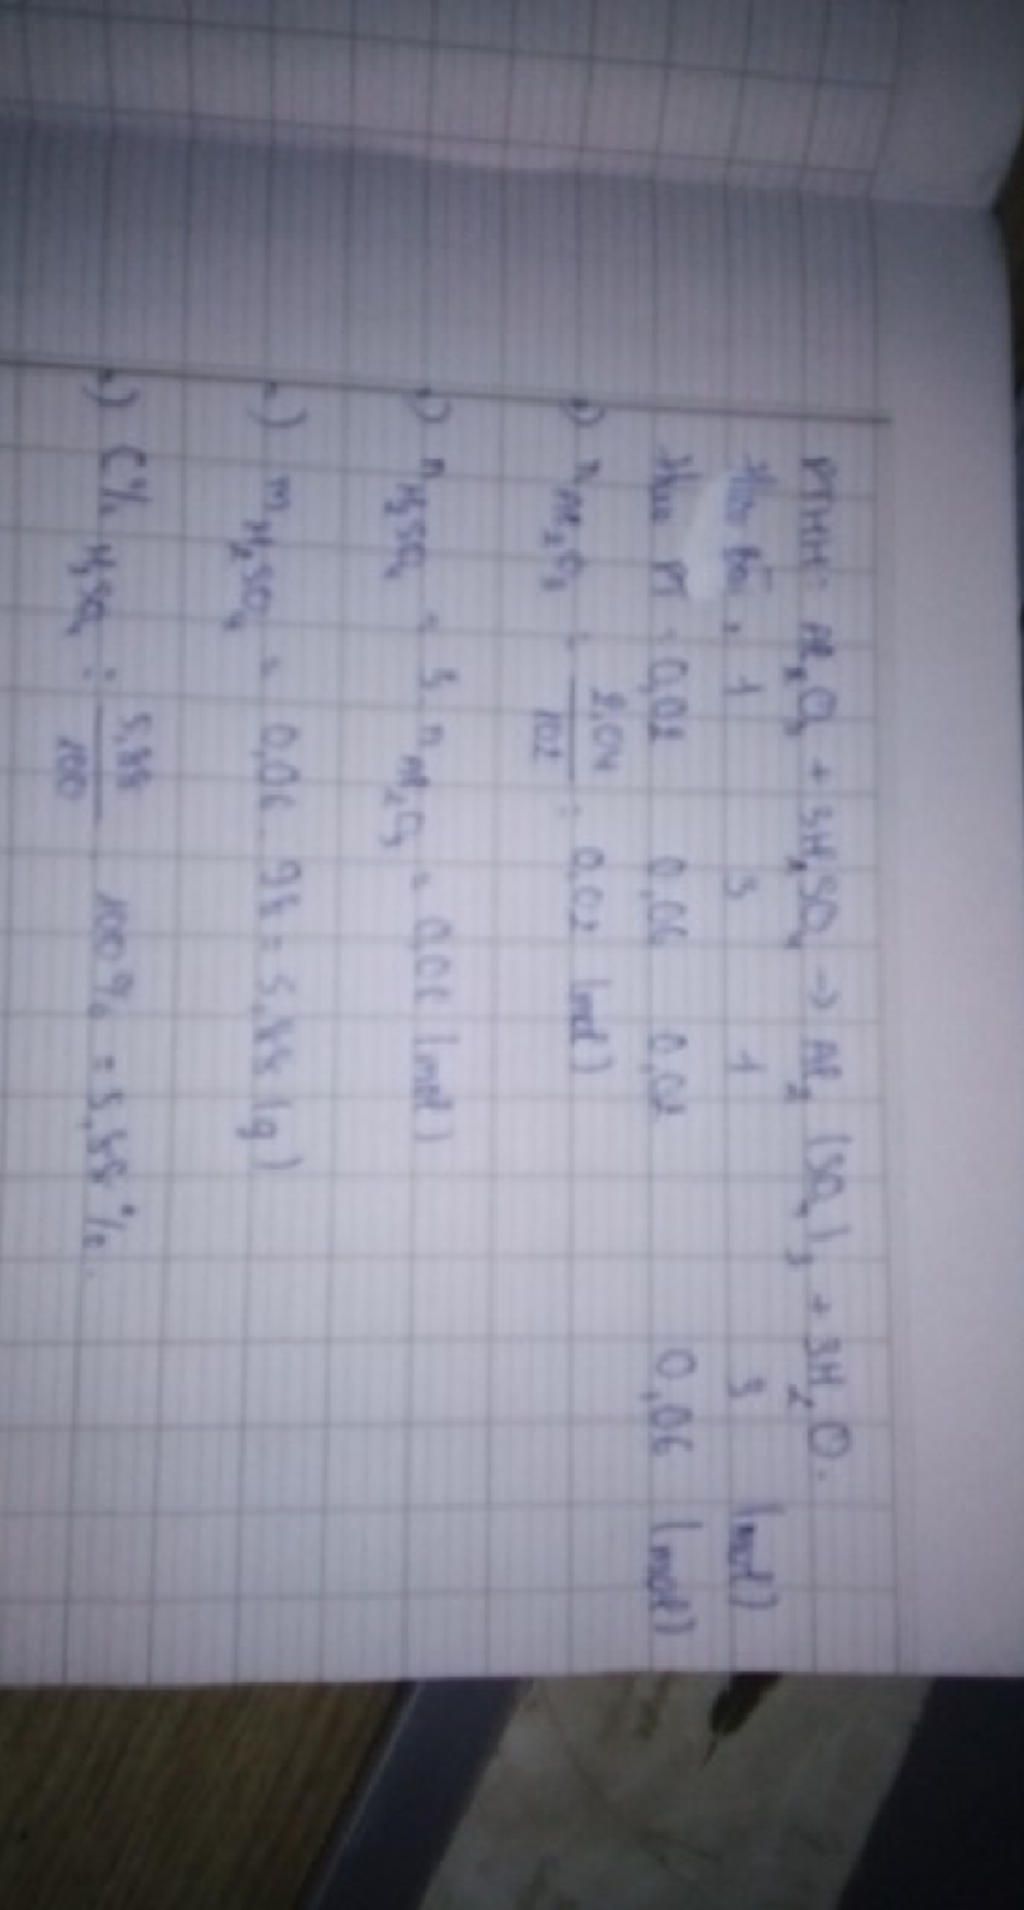 PTHH: Al₂O₃ + 3H₂SO₄ → Al₂(SO₄)₃ + 3H₂O.
Theo : 1 3 1 3 (mol)
Theo PT : 0,02 0,06 0,02 0,06 (mol)
n Al₂O₃ = 2,04/102 = 0,02 (mol)
n H₂SO₄ = 3. n Al₂O₃ = 0,06 (mol)
m H₂SO₄ = 0,06 . 98 = 5,88 (g)
C% H₂SO₄ = 5,88/100 100% = 5,88%.